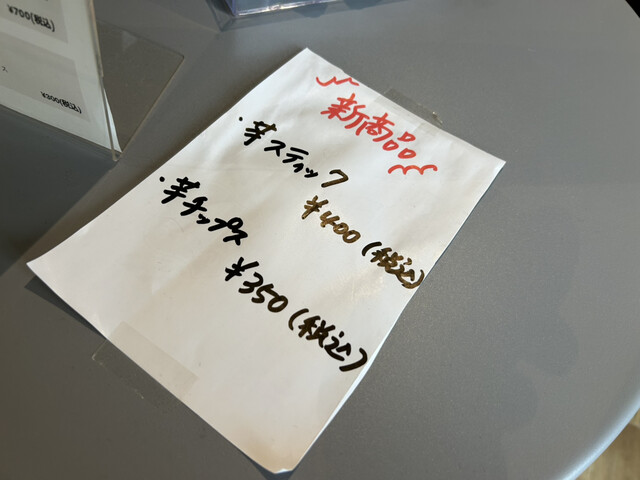 ¥700(税込)
ス
¥300(税込)
新商品
・芋スティック
¥400(税込)
・芋チップス
¥350(税込)